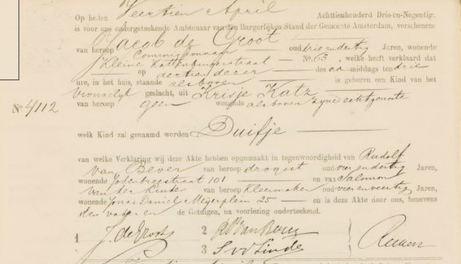 Op heden Veertien April Achttienhonderd Drie-en-Negentig,
is voor ons ondergeteekende Ambtenaar van den Burgerlijken Stand der Gemeente Amsterdam, verschenen:
Jacob de Groot
van beroep Commissionair oud drie en dertig Jaren, wonende
Kleine Kattenburgerstraat No. 63, welke heeft verklaard dat
op dertien dezer des na middags ten drie
ure, in het huis, staande alsboven is geboren een Kind van het
vrouwelijk geslacht, uit Kaatje Katz
No 4112 van beroep geen wonende alsboven zijne echtgenoote
welk Kind zal genaamd worden Duifje
van welke Verklaring wij deze Akte hebben opgemaakt in tegenwoordigheid van Rudolf
van Bever van beroep drogist oud Jaren,
wonende Jodenbreestraat 101 en van Salomon
van der Linde van beroep Kleermaker oud vier en veertig Jaren,
wonende Jonas Daniel Meijerplein 25 en is deze Akte door ons, benevens
de Getuigen, na voorlezing onderteekend.
1 J. de Groot 2 R van Bever
3 S v d Linde